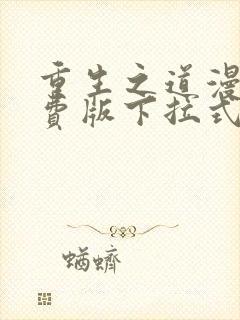 重生之道漫
费版下拉式
蝤蠐